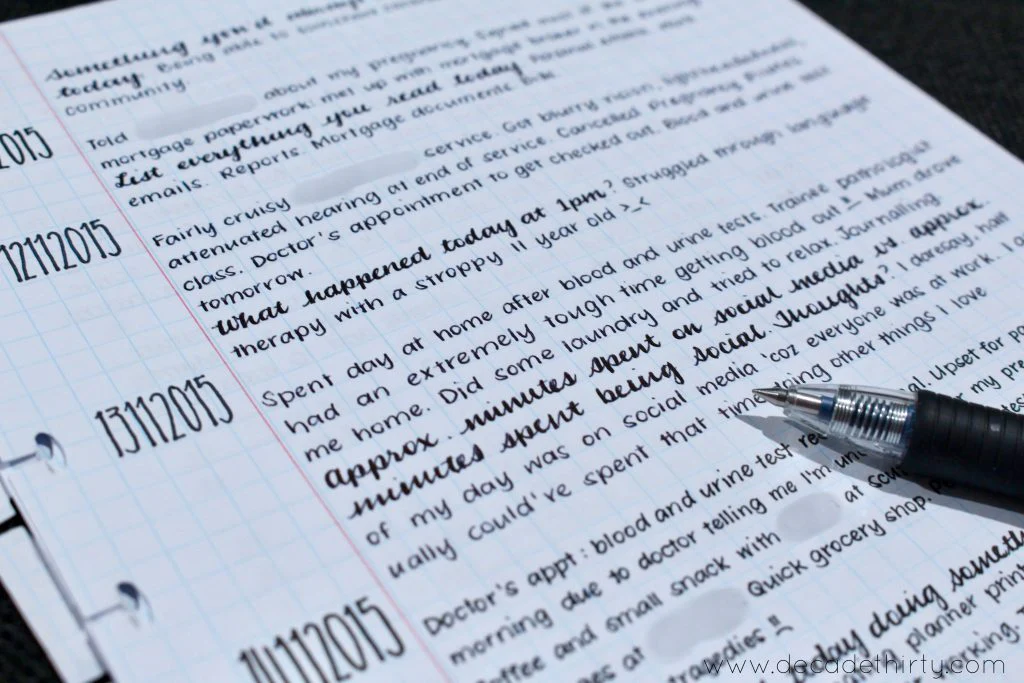 something you'd always
today. Being able to
community
Told about my pregnancy.
mortgage paperwork; met up with mortgage broker in the evening.
2015
List everything you read today. Personal emails, work
emails. Reports. Mortgage documents.
Fairly cruisy service. Got blurry vision, lightheadedness,
attenuated hearing at end of service. Cancelled Pregnancy Pilates
class. Doctor's appointment to get checked out. Blood and urine test
tomorrow.
12112015
What happened today at 1pm? Struggled through language
therapy with a stroppy 11 year old >_<
Spent day at home after blood and urine tests. Trainee pathologist
had an extremely tough time getting blood out !! Mum drove
me home. Did some laundry and tried to relax. Journalling.
13112015
approx. minutes spent on social media vs. approx.
minutes spent being social. Thoughts? I daresay, half
of my day was on social media 'coz everyone was at work. I
ually could've spent that time doing other things I love
Doctor's appt: blood and urine test Upset for
morning due to doctor telling me I'm my
coffee and small snack with at
at Quick grocery shop.
tragedies !!
14112015
today doing something
planner
working.
www.decadethirty.com